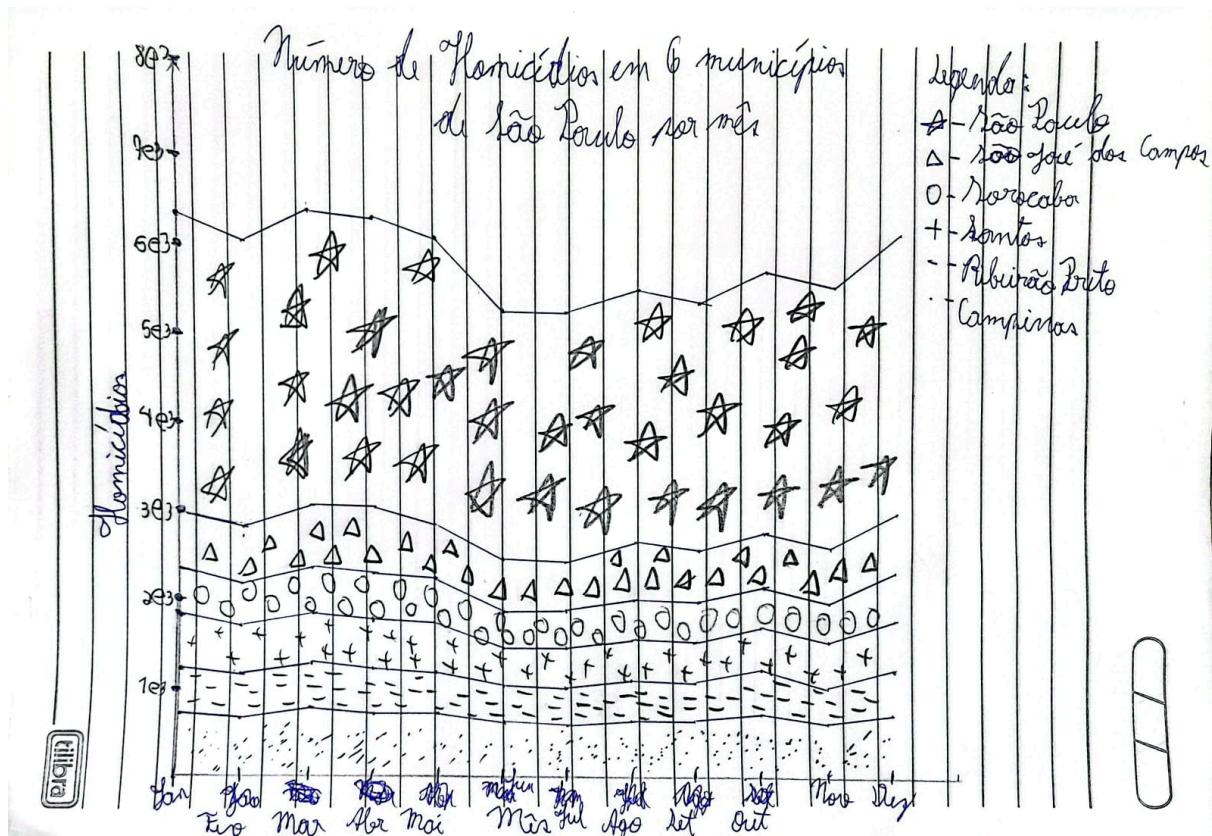 Número de Homicídios em 6 municípios
de São Paulo por mês
Legenda:
☆ - São Paulo
△ - São José dos Campos
○ - Sorocaba
+ - Santos
- - Ribeirão Preto
·· - Campinas
8e3
7e3
6e3
5e3
4e3
3e3
2e3
1e3
Homicídios
Jan
Nov Dez
Mar Abr Mai Mês Jul Ago Set Out
tilibra